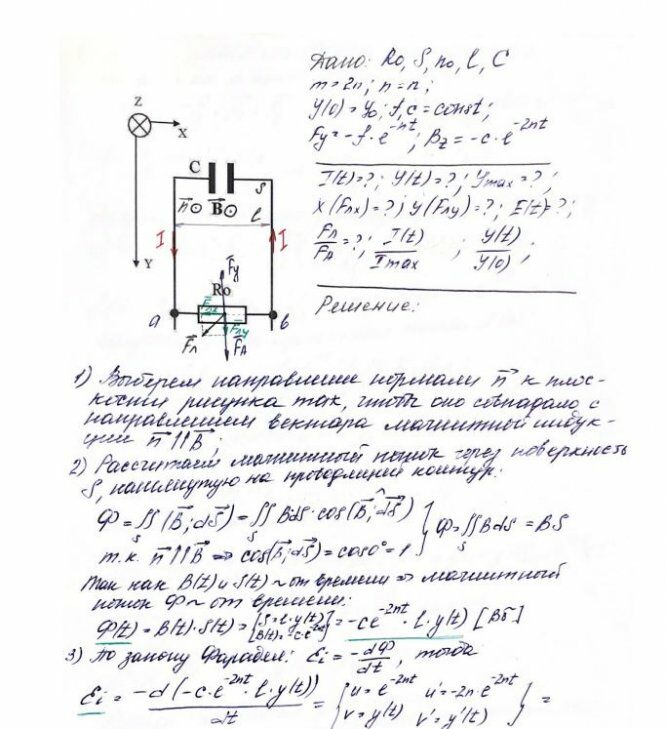 Дано: R₀, S, n₀, l, C
m=2n; n=n;
y(0)=y₀; f,c=const;
Fy=-f·e^{-nt}; B_z=-c·e^{-2nt}
I(t)=?; y(t)=?; y_max=?;
x(F_лx)=?; y(F_лy)=?; E(t)=?;
F_л/F_A=?; I(t)/I_max; y(t)/y(0);
Решение:
Z
X
C
S
n⃗⊙ B⃗⊙
l
I
I
Y
F⃗y
R₀
a
b
F⃗_лy
F⃗_л
F⃗_A
1) Выберем направление нормали n⃗ к плос-
кости рисунка так, чтобы оно совпадало с
направлением вектора магнитной индук-
ции n⃗||B⃗.
2) Рассчитаем магнитный поток через поверхность
S, натянутую на проводящий контур.
Ф=∬_S(B⃗;dS⃗)=∬_S BdS·cos(B⃗;dS⃗) } Ф=∬_S BdS=BS
т.к. n⃗||B⃗ ⇒ cos(B⃗;dS⃗)=cos0°=1
Так как B(t) и S(t) ~ от времени ⇒ магнитный
поток Ф ~ от времени:
Ф(t)=B(t)·S(t)=[S=l·y(t) B(t)=-c·e^{-2nt}]=-ce^{-2nt}·l·y(t) [Вб]
3) По закону Фарадея: ℰi=-dФ/dt, тогда
ℰi=-d(-c·e^{-2nt}·l·y(t))/dt={u=e^{-2nt} u'=-2n·e^{-2nt} v=y(t) v'=y'(t)}=